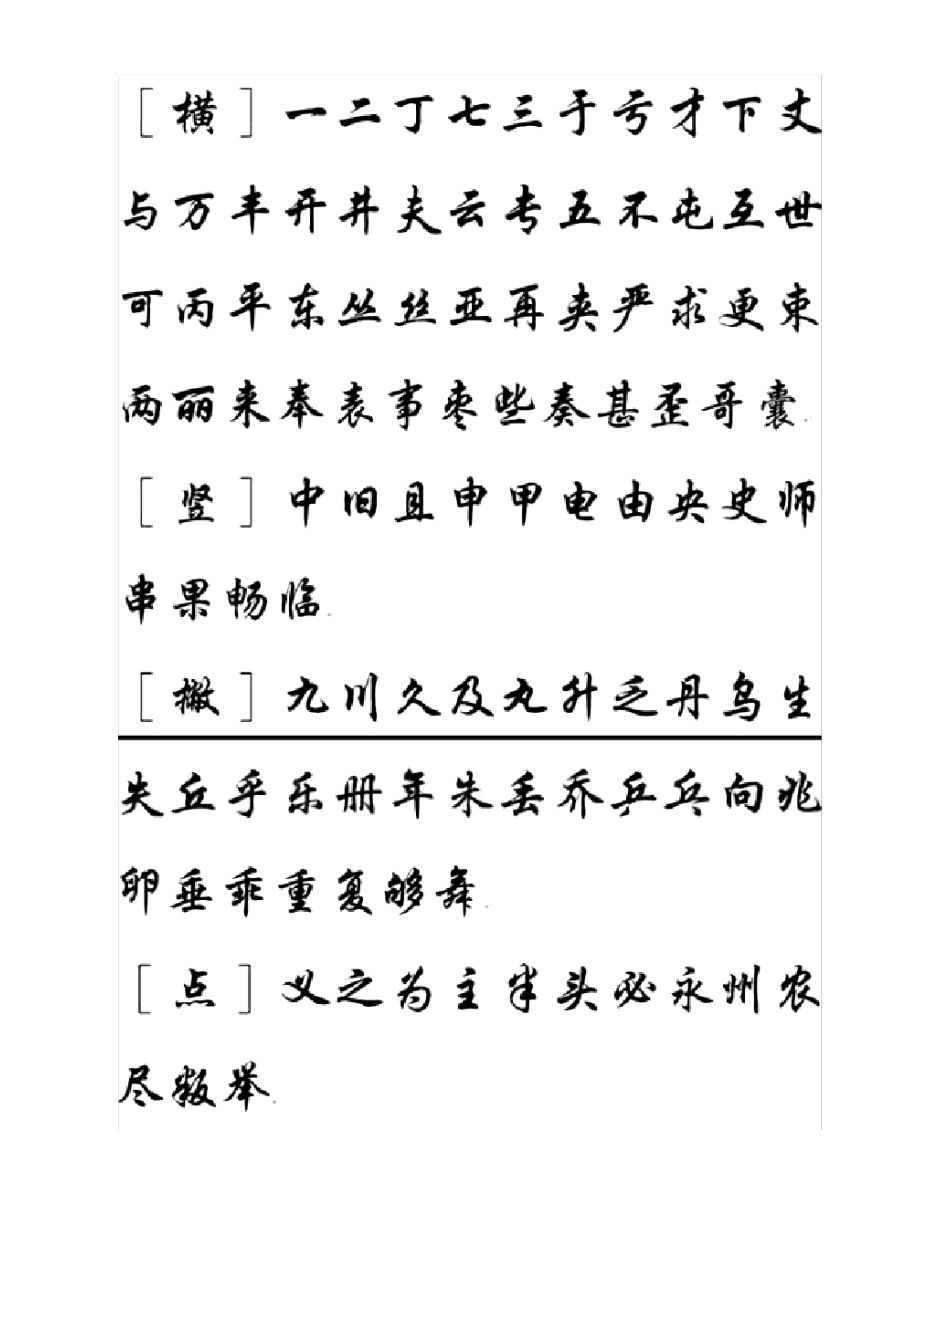 [横]一二丁七三于亏才下丈
与万丰开井夫云专五不屯互世
可丙平东丛丝亚再夹严求更束
两丽来奉表事枣些奏甚歪哥囊.
[竖]中旧且申甲电由央史师
串果畅临.
[撇]九川久及丸升乏丹乌生
失丘乎乐册年朱丢乔乒乓向兆
卵垂乖重复够舞.
[点]义之为主半头必永州农
尽叛举.